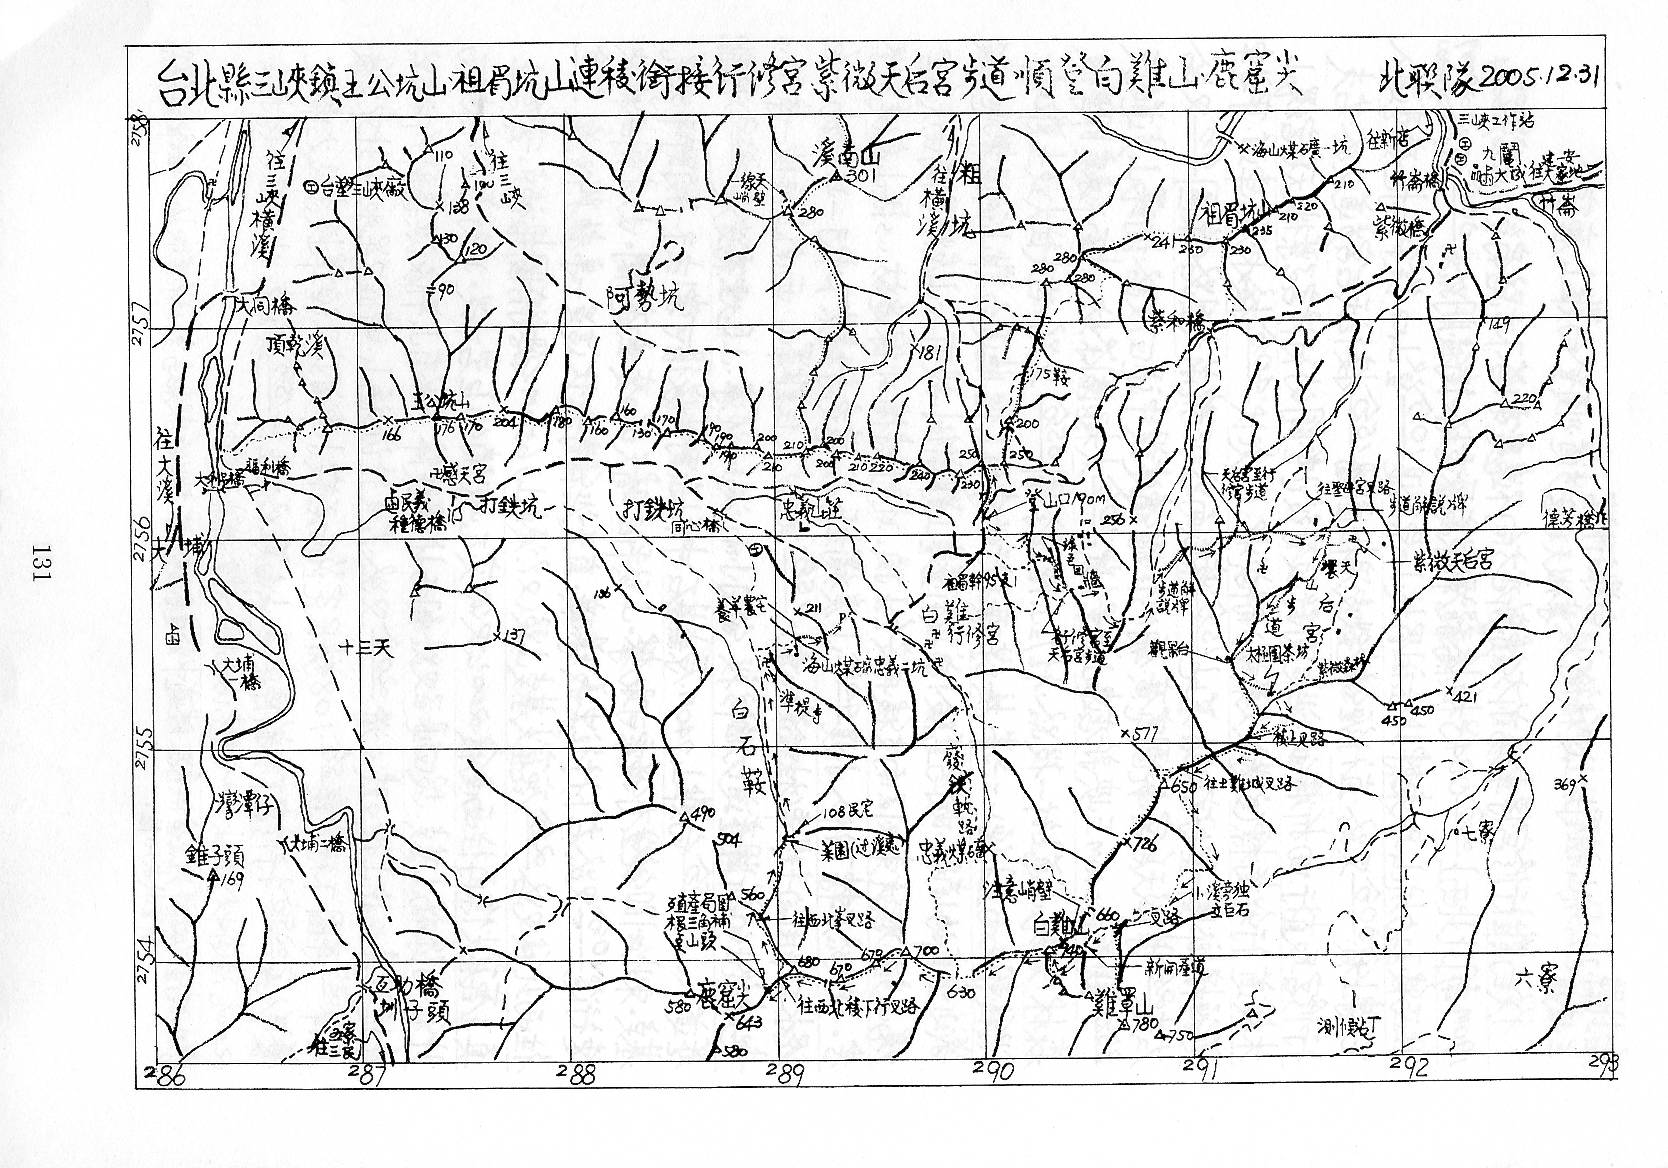 台北縣三峽鎮王公坑山.祖眉坑山連稜銜接行修宮紫微天后宮步道.順登白雞山.鹿窟尖
北聯隊2005.12.31
三峽工作站
九鬮
往新店
海山煤石礦一坑
竹崙橋
竹崙
紫微橋
祖眉坑山
溪南山
301
一線天
峭壁
往橫溪
粗坑
往三峽
往三峽橫溪
台塑三峽廠
110
190
138
130
120
90
280
280
280
280
241
230
230
235
210
220
210
阿勢坑
大同橋
頂乾溪
紫和橋
149
181
175鞍
220
王公坑山
166
176
170
204
180
160
160
130
170
190
190
190
200
210
210
200
200
210
220
240
250
230
250
200
往大溪
大埔
福利橋
感天宮
打鉄坑
種德橋
打鉄坑
同心橋
忠義山莊
登山口190m
256
天后宮至行
修宮步道
步道解說牌
德芳橋
紫微天后宮
186
211
137
養羊農宅
白雞
行修宮
行修宮至
天后宮步道
步道解
說牌
觀景台
十三天
大埔
一橋
海山煤石礦忠義二坑
準提寺
白石鞍
大桂圓茶坊
紫微森林
450
450
421
577
稜上叉路
650
往土雞城叉路
369
灣潭仔
錐子頭
169
大埔二橋
490
504
108民宅
菜園(过溪底)
忠義煤礦
726
七寮
注意峭壁
小溪旁独
立巨石
560
殖產局圖
根三角補
点山頭
往西北峯叉路
白雞山
660
740
叉路
新開產道
680
670
679
700
630
鹿窟尖
580
643
580
往西北稜下行叉路
雞罩山
780
750
六寮
測候站
互助橋
圳仔頭
往五寮
三民
2758
2757
2756
2755
2754
286
287
288
289
290
291
292
293
131